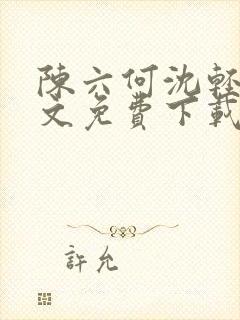 陳六何沈輕
文免費下載
許允